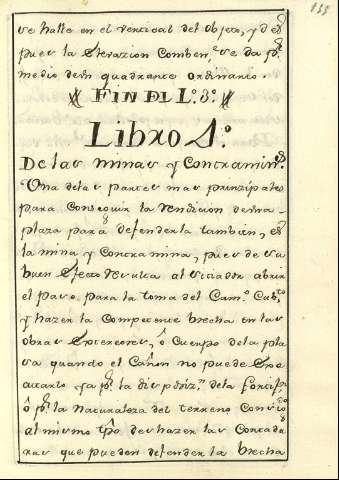 155
se halle en el vertical del objeto, y des
pues la Elevazion Comben.te se da p.r
medio de un quadrante ordinario.
FIN DEL L.o 3.o
Libro 4.o
De las minas y Contramin.s
Una de las partes mas prinzipales
para Conseguir la rendicion de una
plaza para defenderla tambien, es
la mina y Contramina, pues de su
buen Efecto resulta al sitiador abrir
el paso para la toma del Cam.o Cub.to
y hazer la Competente brecha en las
obras Exteriores, ô Cuerpo de la pla
sa quando el Cañon no puede Exe
cutarlo ya p.r la dispoziz.n dela fortifi
ô p.r la Naturaleza del terreno
al mismo tpô deshazer las Cortadu
ras que pueden defender la brecha